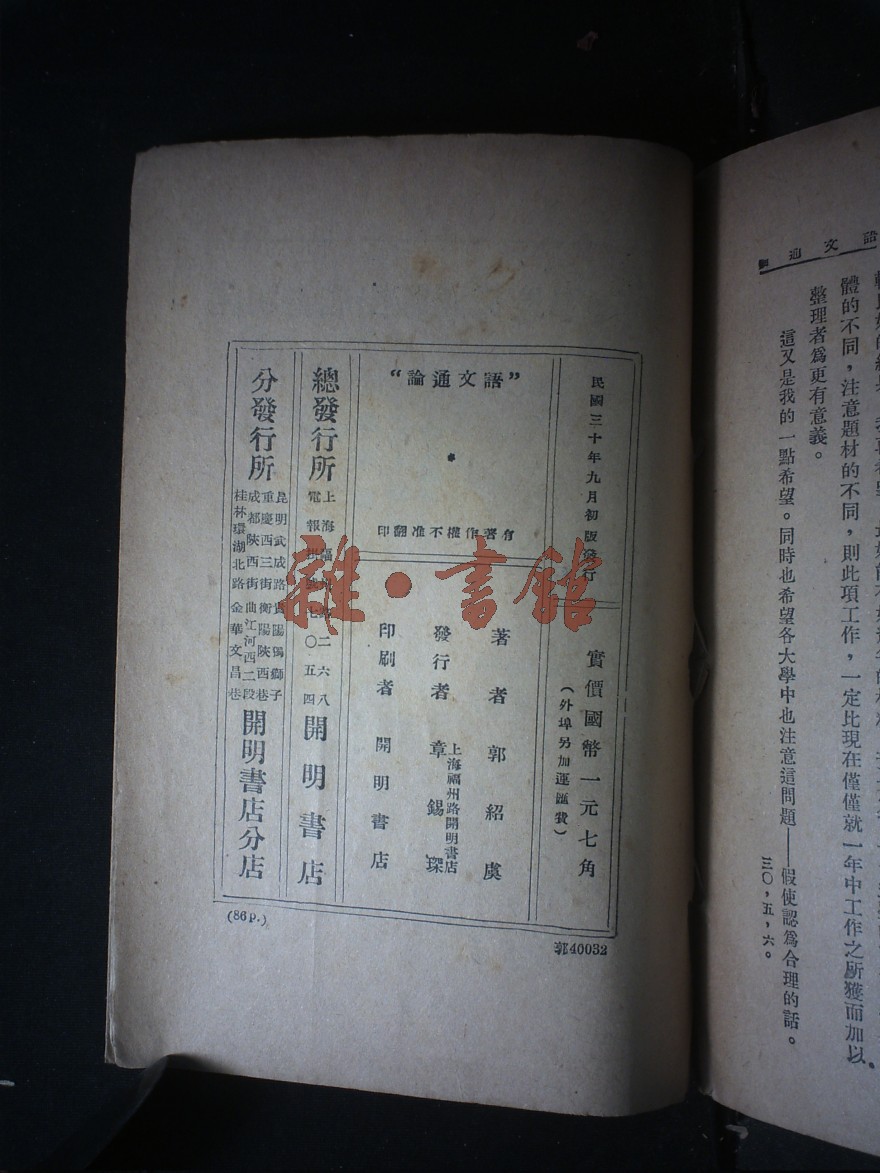 語文通論
體的不同，注意題材的不同，則此項工作，一定比現在僅僅就一年中工作之所獲而加以
整理者爲更有意義。
這又是我的一點希望。同時也希望各大學中也注意這問題——假使認爲合理的話。
三〇，五，六。
民國三十年九月初版發行
實價國幣一元七角
（外埠另加運匯費）
“語文通論”
有著作權不准翻印
著者 郭紹虞
發行者 章錫琛
上海福州路開明書店
印刷者 開明書店
總發行所
上海福州路二六八
電報掛號七〇五四
開明書店
分發行所
昆明武成路 貴陽獅子
重慶西三街 衡陽陝西巷
成都陝西街 曲江河西二段
桂林環湖北路 金華文昌巷
開明書店分店
(86P.)
郭40032
雜·書館